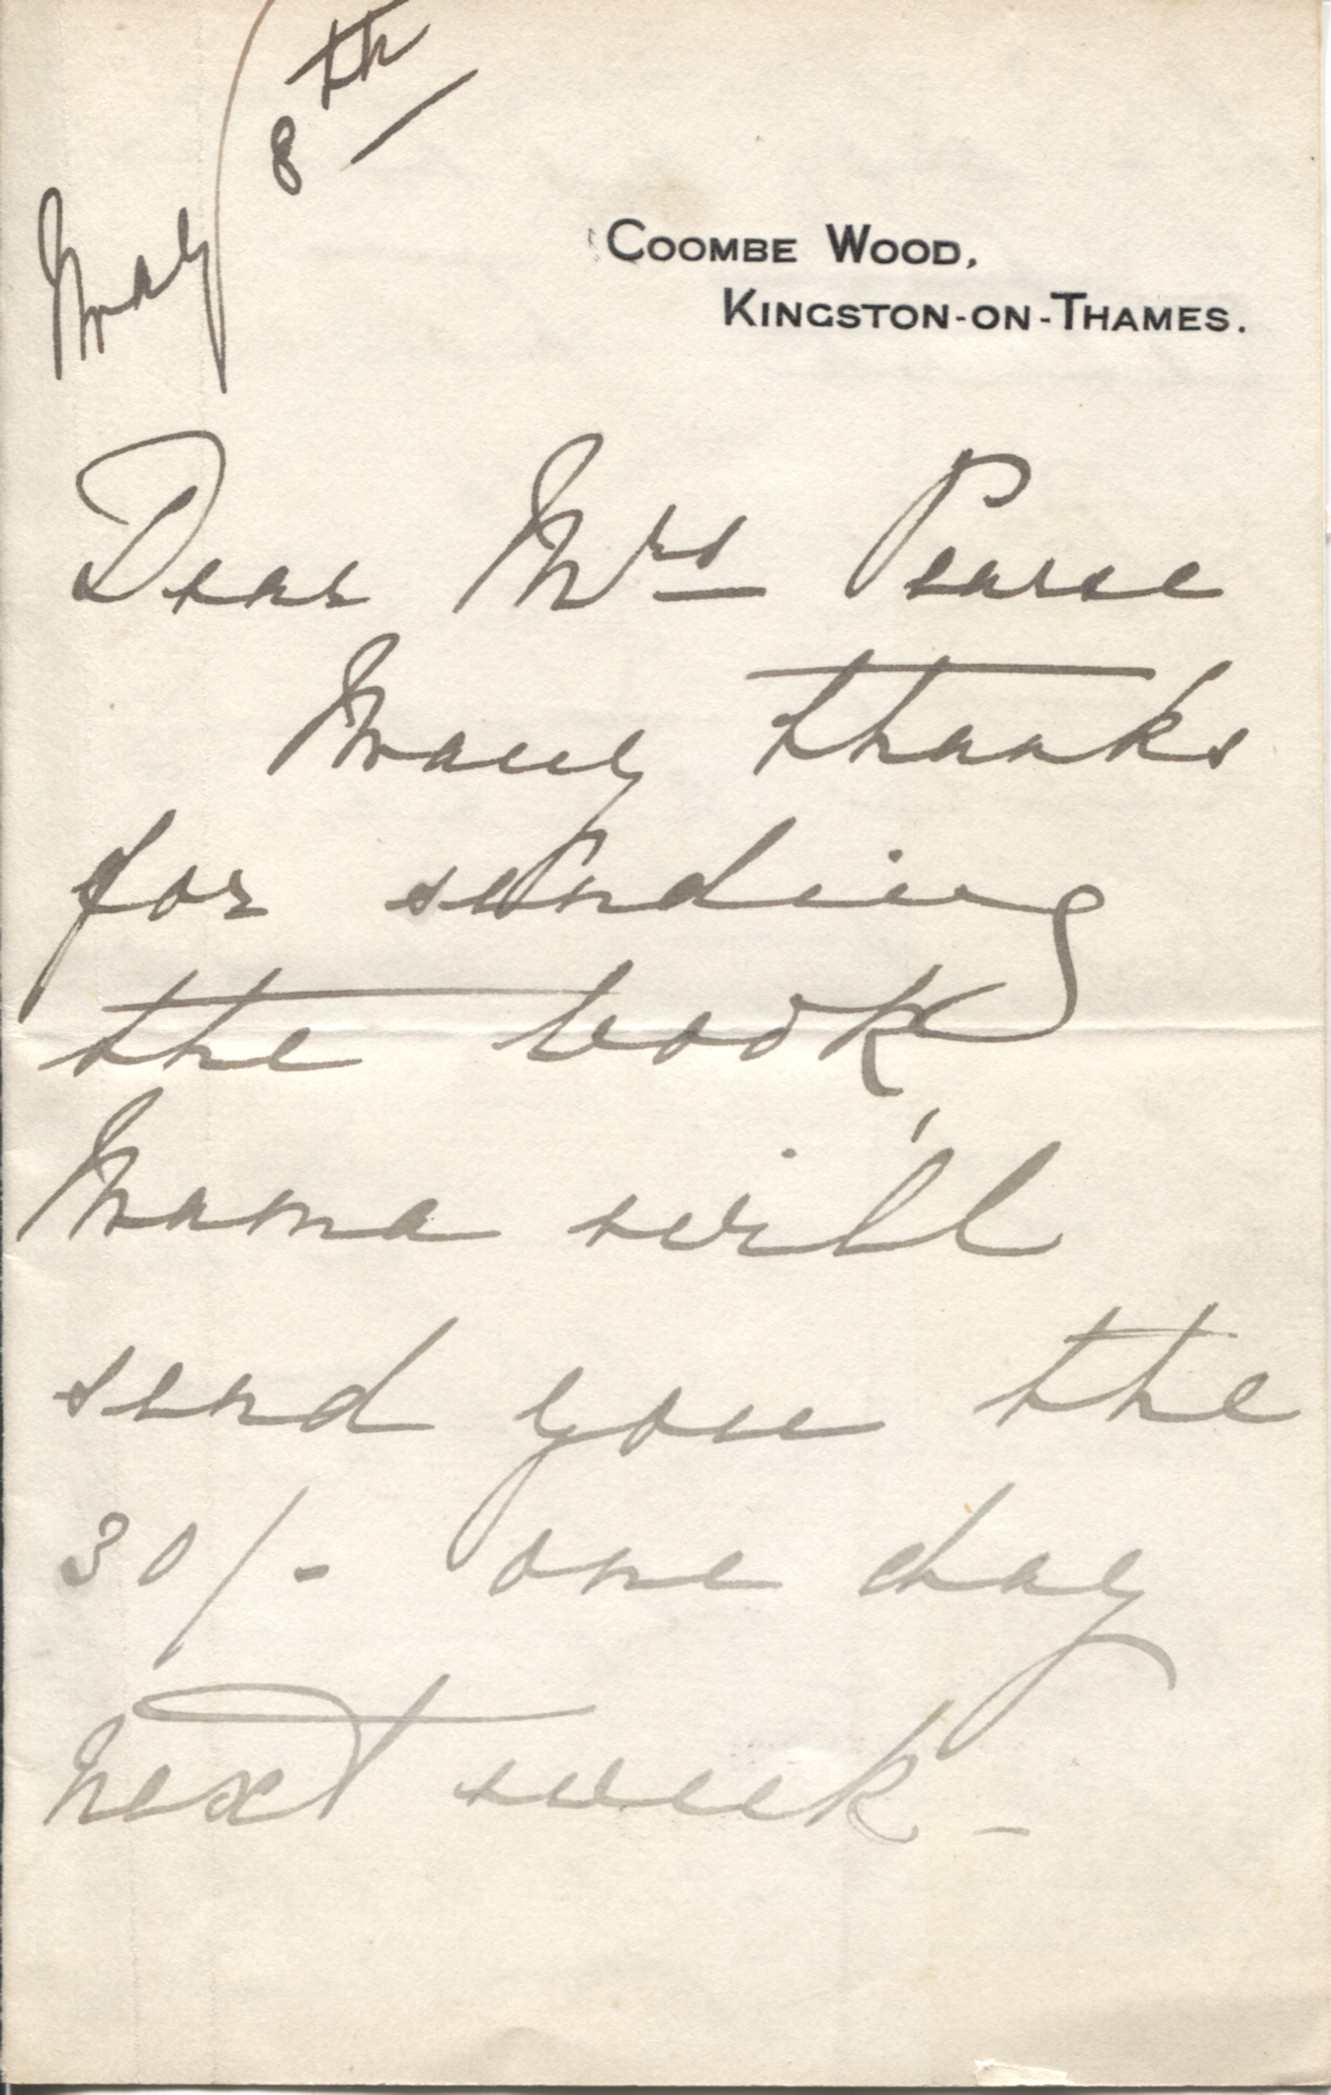 May 8th
COOMBE WOOD,
KINGSTON-ON-THAMES.
Dear Mrs Pearse
Many thanks
for sending
the book,
Mama will
send you the
30/- one day
next week -